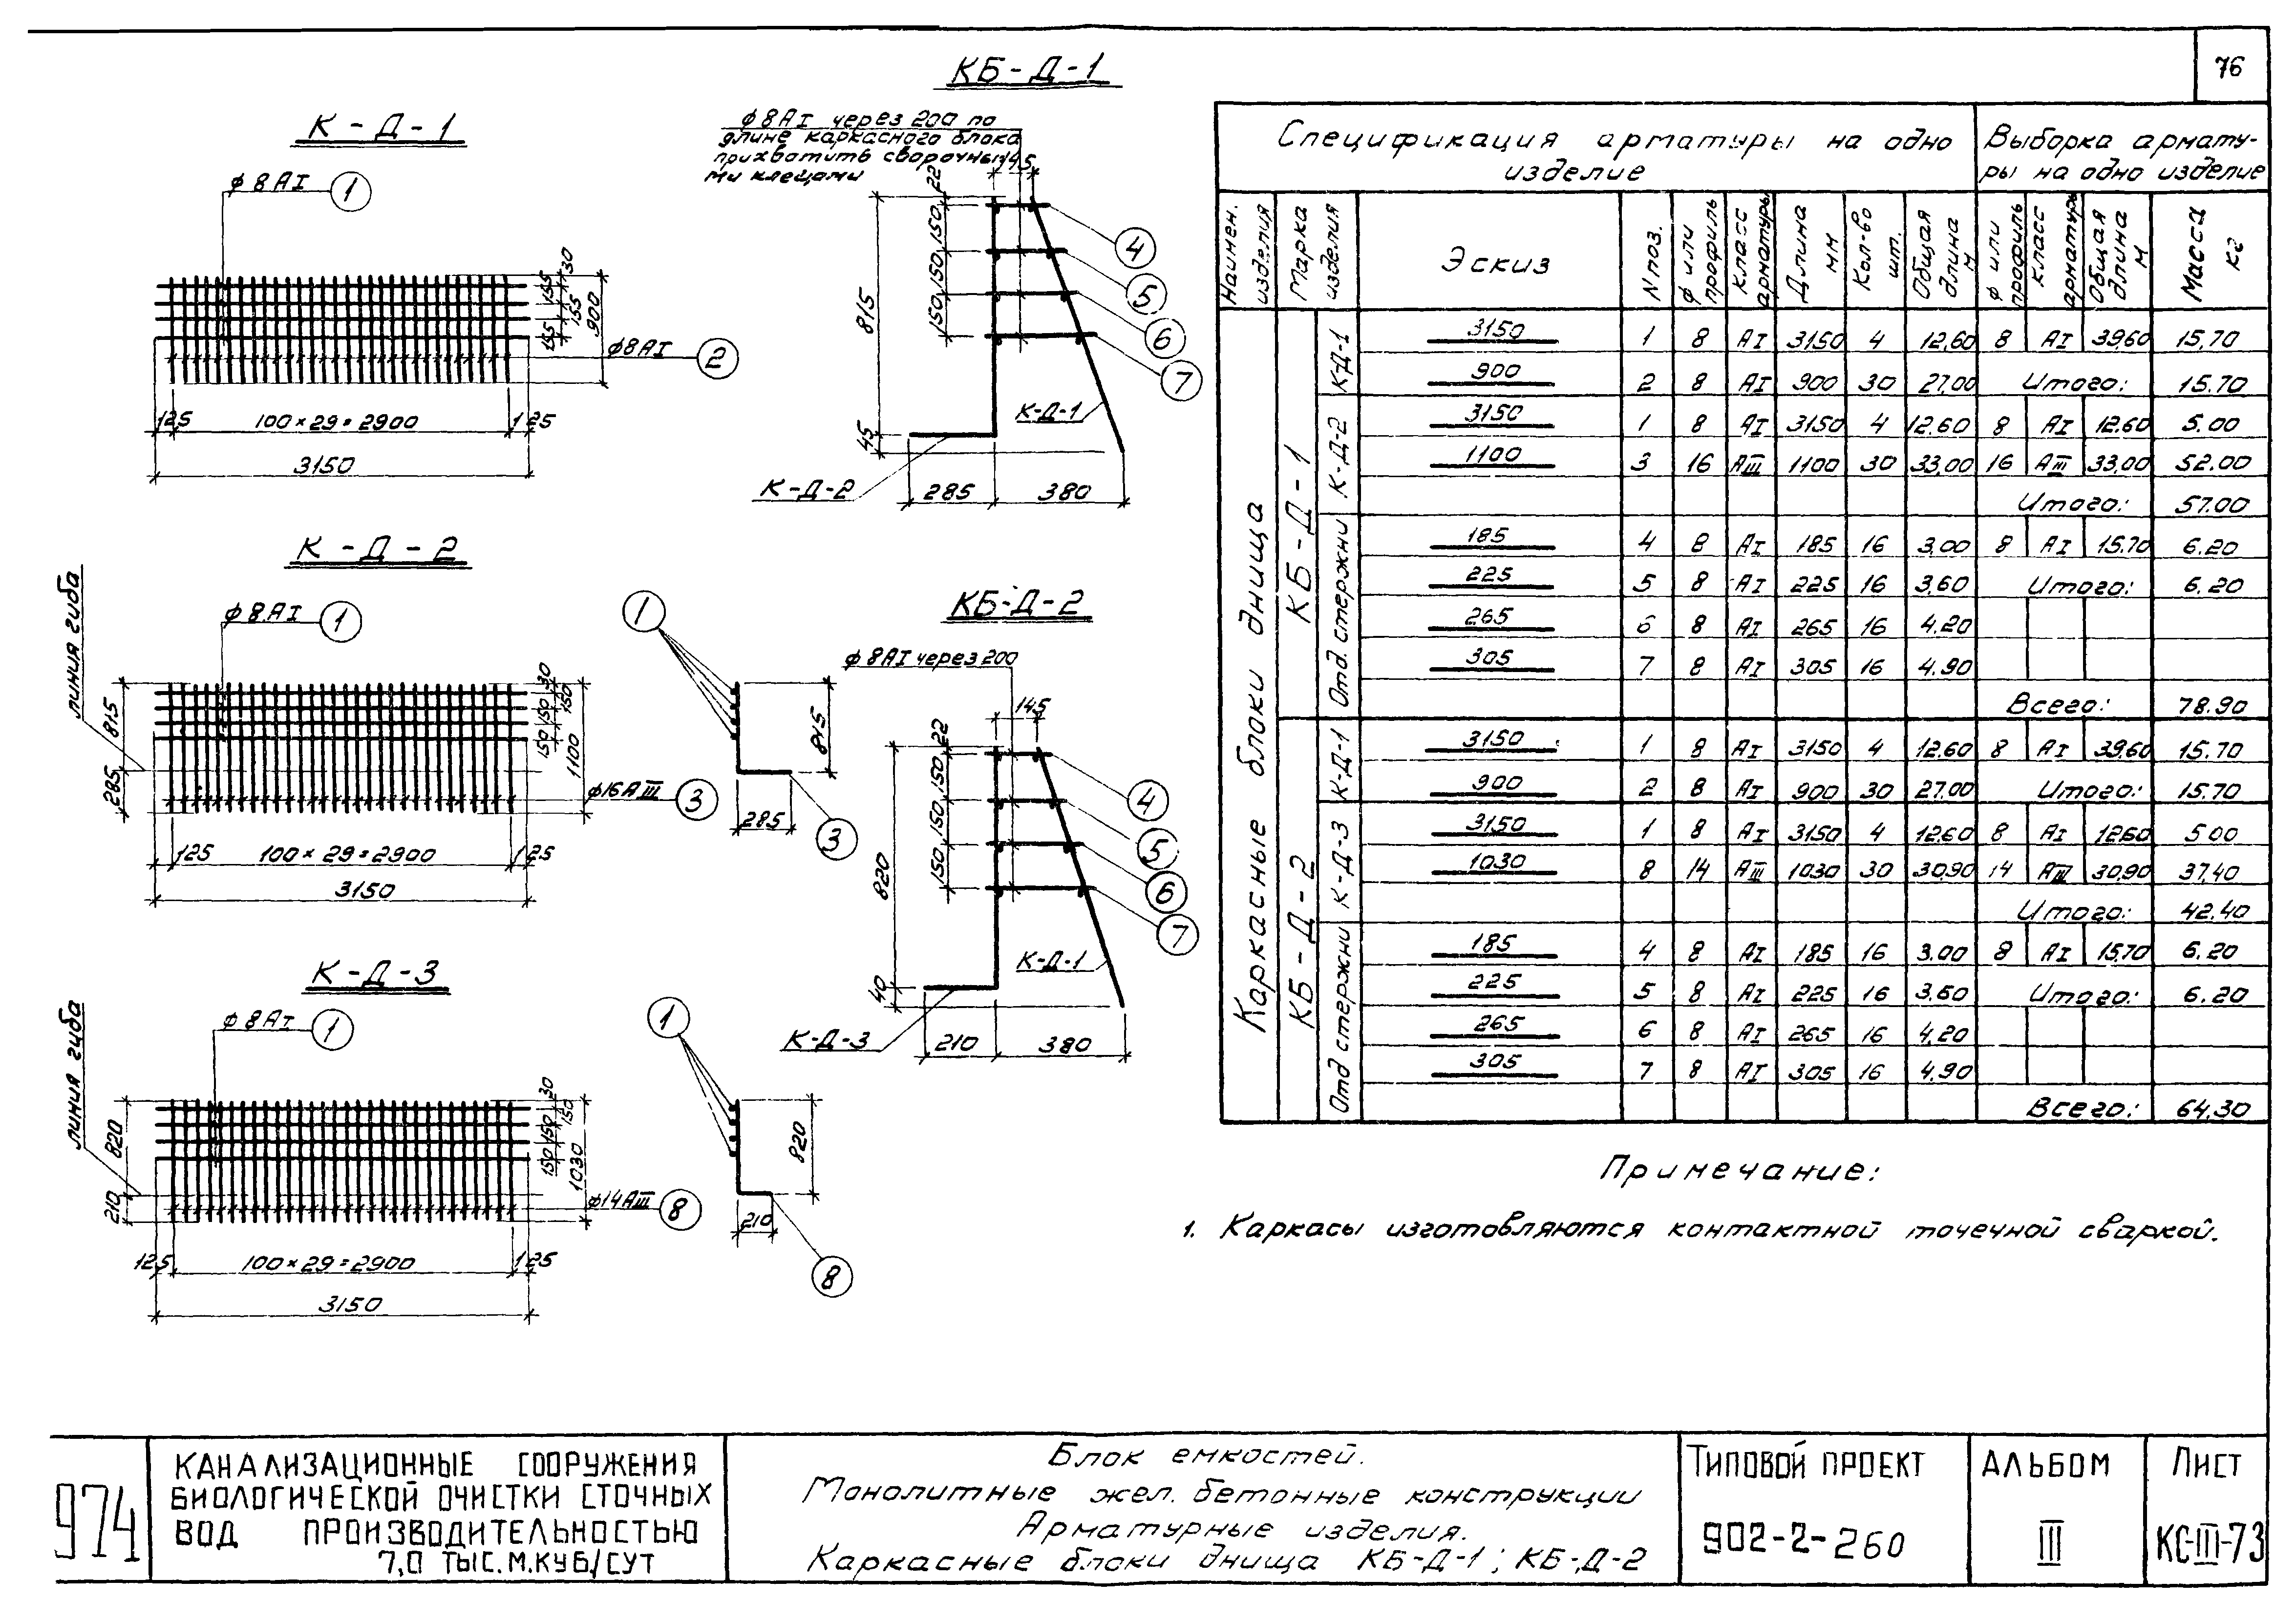 76
К-Д-1
φ8АI
1
155
155
155
30
900
φ8АI
2
125
100×29=2900
125
3150
КБ-Д-1
φ8АI через 200 по
длине каркасного блока
прихватить сварочны-
ми клещами
145
22
150
150
150
815
45
4
5
6
7
К-Д-1
К-Д-2
285
380
К-Д-2
линия гиба
φ8АI
1
815
285
30
150
150
150
1100
φ16АIII
3
125
100×29=2900
125
3150
1
815
285
3
КБ-Д-2
φ8АI через 200
145
22
150
150
150
820
40
4
5
6
7
К-Д-1
К-Д-3
210
380
К-Д-3
линия гиба
φ8АI
1
820
210
30
150
150
150
1030
φ14АIII
8
125
100×29=2900
125
3150
1
820
210
8
Спецификация арматуры на одно изделие
Выборка армату-
ры на одно изделие
Наимен. изделия
Марка изделия
Эскиз
N поз.
φ или профиль
Класс арматуры
Длина мм
Кол-во шт.
Общая длина м
φ или профиль
класс арматуры
Общая длина м
Масса кг
Каркасные блоки днища
КБ-Д-1
К-Д-1
3150 1 8 АI 3150 4 12,60 8 АI 39,60 15,70
900 2 8 АI 900 30 27,00 Итого: 15.70
К-Д-2
3150 1 8 АI 3150 4 12.60 8 АI 12.60 5.00
1100 3 16 АIII 1100 30 33,00 16 АIII 33,00 52.00
Итого: 57.00
Отд. стержни
185 4 8 АI 185 16 3,00 8 АI 15.70 6.20
225 5 8 АI 225 16 3,60 Итого: 6.20
265 6 8 АI 265 16 4,20
305 7 8 АI 305 16 4.90
Всего: 78.90
КБ-Д-2
К-Д-1
3150 1 8 АI 3150 4 12.60 8 АI 39,60 15.70
900 2 8 АI 900 30 27.00 Итого: 15.70
К-Д-3
3150 1 8 АI 3150 4 12.60 8 АI 12.60 5 00
1030 8 14 АIII 1030 30 30,90 14 АIII 30,90 37,40
Итого: 42.40
Отд стержни
185 4 8 АI 185 16 3.00 8 АI 15,70 6.20
225 5 8 АI 225 16 3.60 Итого: 6.20
265 6 8 АI 265 16 4,20
305 7 8 АI 305 16 4.90
Всего: 64,30
Примечание:
1. Каркасы изготовляются контактной точечной сваркой.
974
КАНАЛИЗАЦИОННЫЕ СООРУЖЕНИЯ
БИОЛОГИЧЕСКОЙ ОЧИСТКИ СТОЧНЫХ
ВОД ПРОИЗВОДИТЕЛЬНОСТЬЮ
7,0 ТЫС.М.КУБ/СУТ
Блок емкостей.
Монолитные жел. бетонные конструкции
Арматурные изделия.
Каркасные блоки днища КБ-Д-1; КБ-Д-2
ТИПОВОЙ ПРОЕКТ
902-2-260
АЛЬБОМ
III
ЛИСТ
КС-III-73